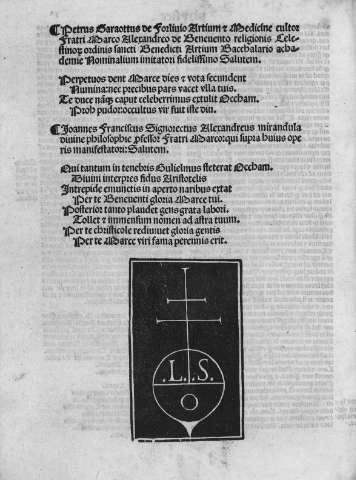 Petrus Garaottus de Forliuio Artium ⁊ Medicine cultor
Fratri Marco Alexandreo de Beneuento religionis Cele-
stinorum ordinis sancti Benedicti Artium Bacchalario acha-
demie Nominalium imitatori fidelissimo Salutem.
Perpetuos dent Marce dies ⁊ vota secundent
Numina: nec precibus pars vacet vlla tuis.
Te duce nanq; caput celeberrimus extulit Occham.
Proh pudor: occultus vir fuit iste diu.
Joannes Franciscus Signorectus Alexandreus mirandula
diuine philosophie professor Fratri Marco: qui supra huius ope
ris manifestator: Salutem.
Qui tantum in tenebris Gulielmus steterat Occham.
Diuini interpres fidus Aristotelis
Intrepide emunctis in aperto naribus extat
Per te Beneuenti gloria Marce tui.
Posterior tanto plaudet gens grata labori.
Tollet ⁊ immensum nomen ad astra tuum.
Per te christicole rediuiuet gloria gentis
Per te Marce viri fama perennis erit.
.L. .S.